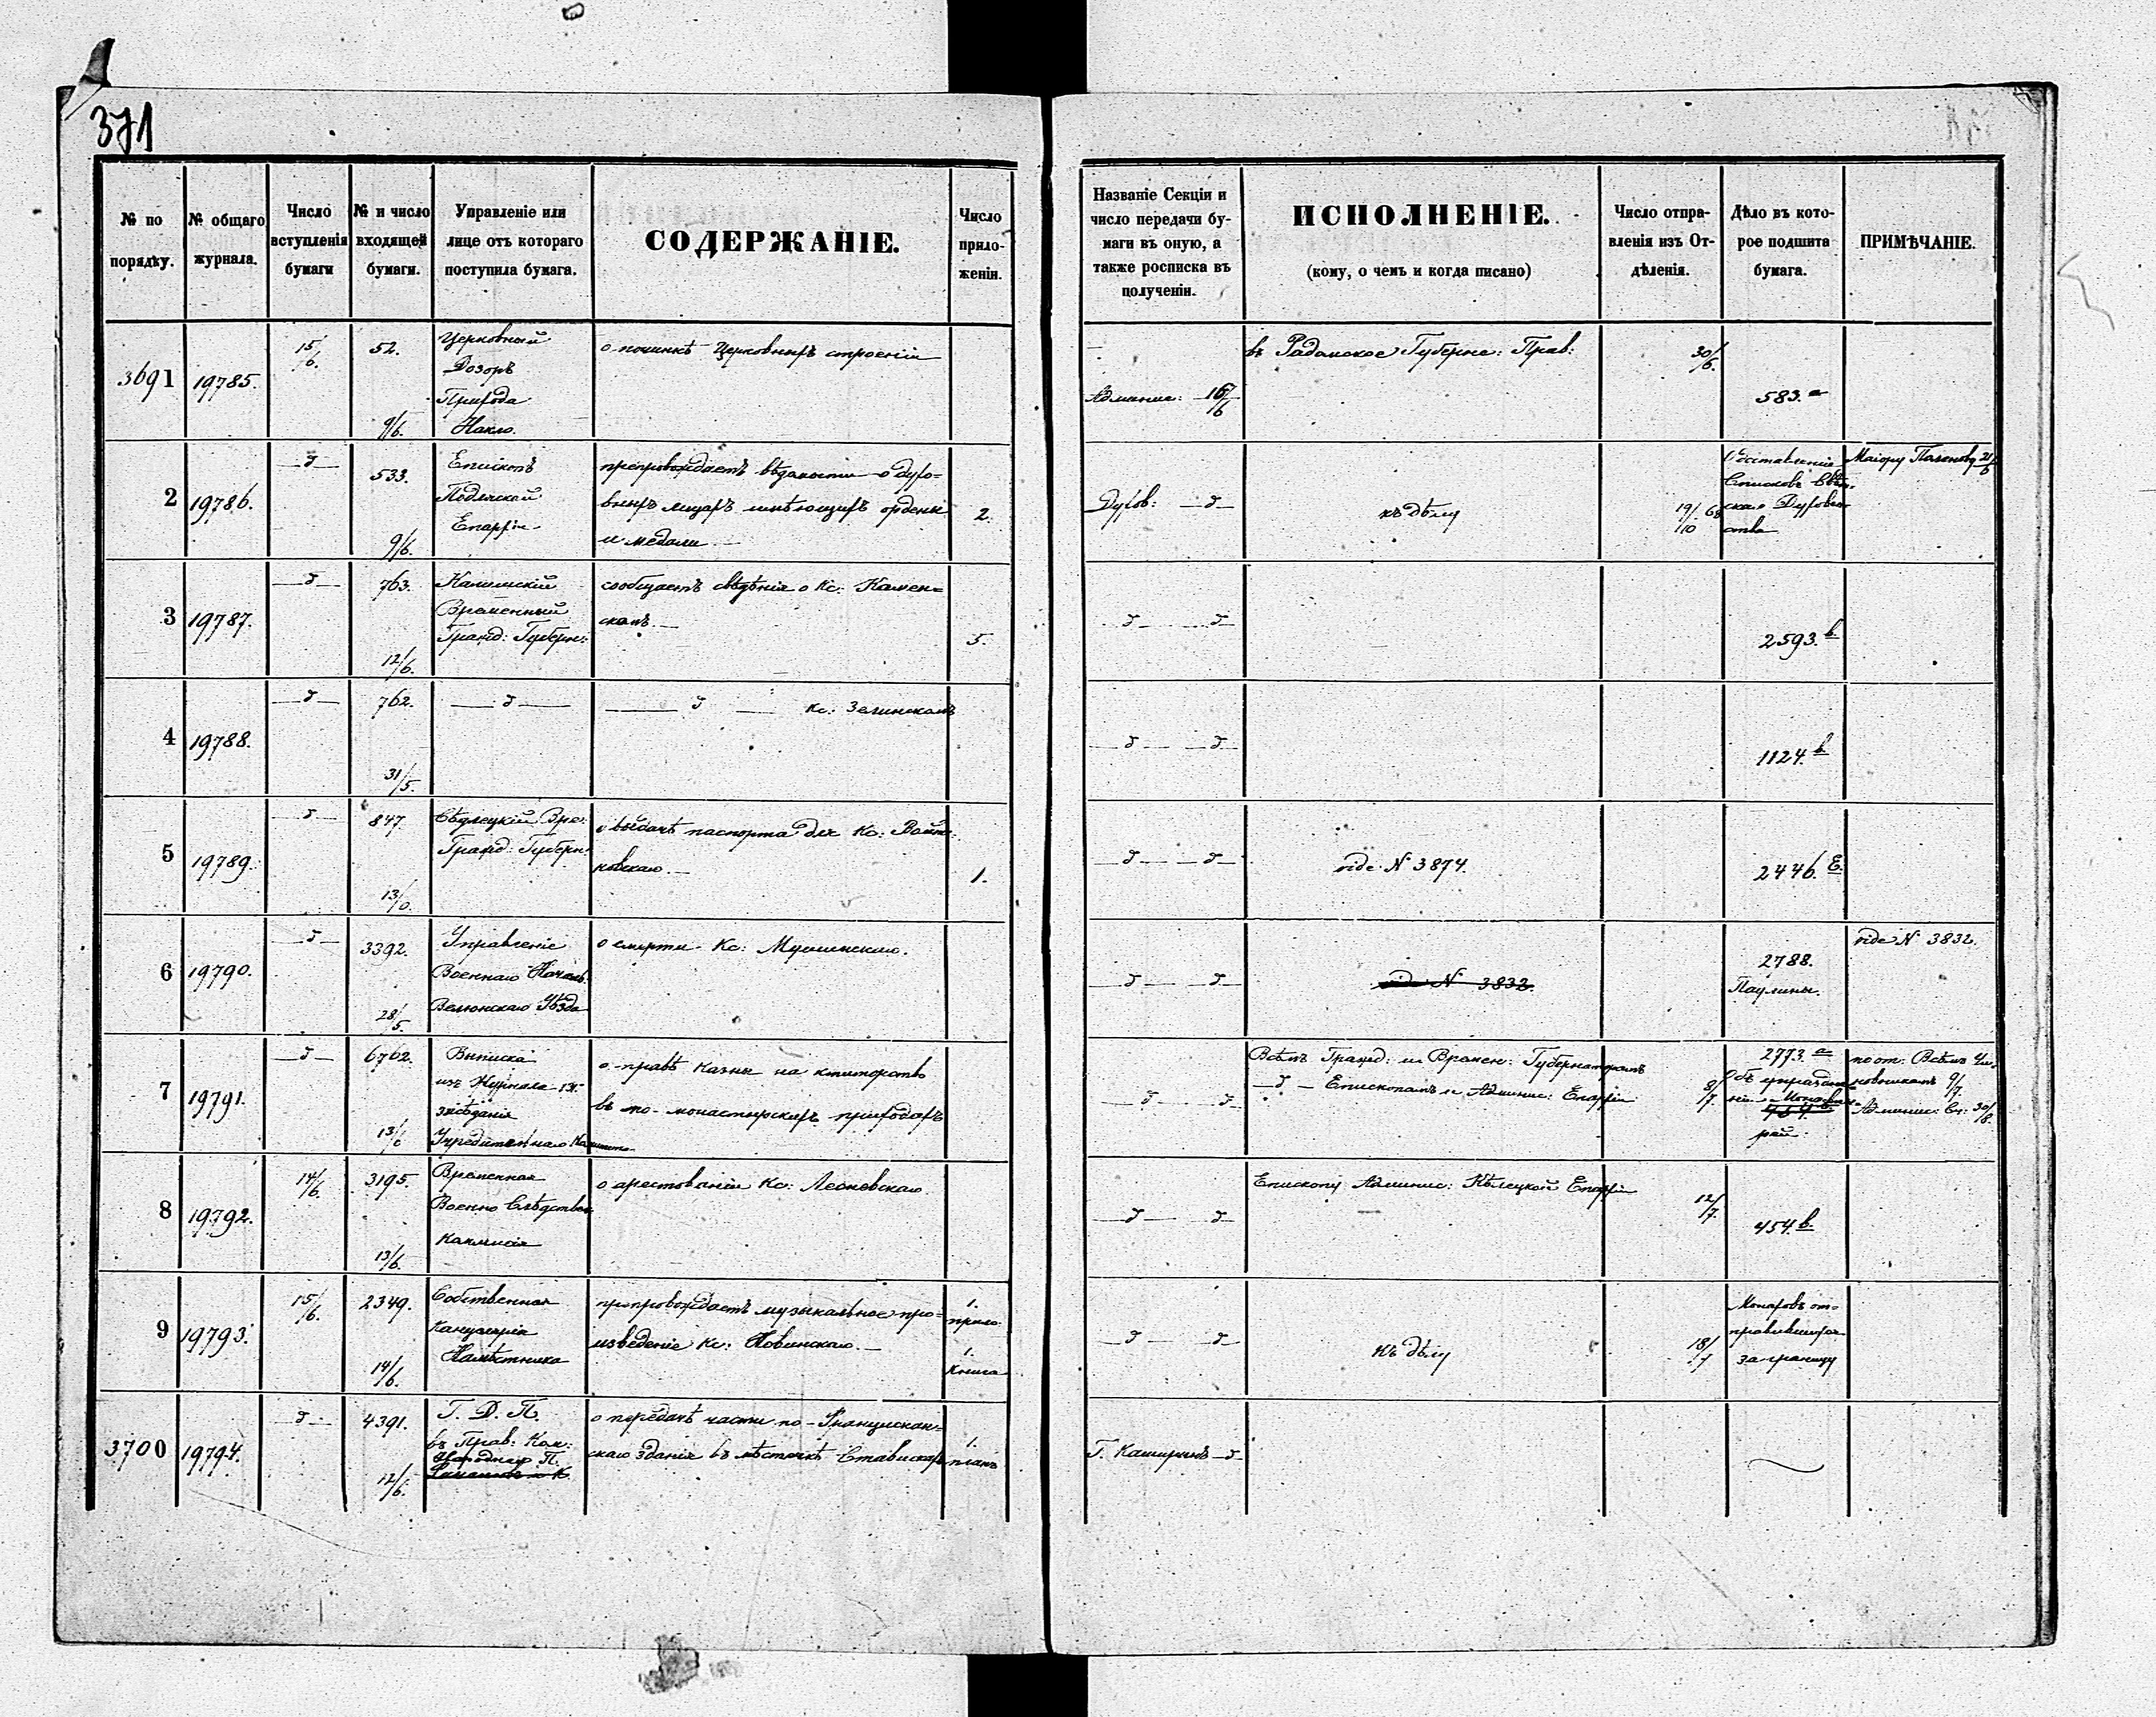 371
№ по порядку.
№ общаго журнала.
Число вступленія бумаги
№ и число входящей бумаги.
Управленіе или лице отъ котораго поступила бумага.
СОДЕРЖАНІЕ.
Число приложеніи.
Названіе Секціи и число передачи бумаги въ оную, а также росписка въ полученіи.
ИСПОЛНЕНІЕ.
(кому, о чемъ и когда писано)
Число отправленія изъ Отдѣленія.
Дѣло въ которое подшита бумага.
ПРИМѢЧАНІЕ.
3691
19785.
15/6.
52.
9/6.
Церковный
Дозоръ
Прихода
Накло.
о починкѣ Церковныхъ строеній
Админис: 16/6
въ Радомское Губерне: Прав:
30/6.
583. а
2
19786.
d
533.
9/6.
Епископъ
Подляской
Епархіи
препровождаетъ вѣдомости о духо=
вныхъ лицахъ имѣющихъ ордены
и медали
2.
Духов: d
къ дѣлу
19/10 68
Доставленіе
Списковъ Свѣт.
скаго Духовен
ства
Маіору 21/6
3
19787.
d
763.
12/6.
Калишскій
Временный
Гражд: Губерн:
сообщаетъ свѣдѣнія о Кс: Камен=
скомъ.
5.
d d
2593. b
4
19788.
d
762.
31/5.
d
d Кс: Зелинскомъ
d d
1124. b
5
19789.
d
847.
13/6.
Сѣдлецкій Вре:
Гражд: Губерн.
о выдачѣ паспорта для Кс: Войт=
ковскаго.
1.
d d
vide N 3874.
2446. E.
6
19790.
d
3392.
28/5.
Управленіе
Военнаго Началь.
Велюнскаго Уѣзда
о смерти Кс: Мусинскаго.
d d
vide N 3832.
2788.
Паулины.
vide N 3832.
7
19791.
d
6762.
13/6
Выписка
изъ Журнала 131.
засѣданія
Учредительнаго Комитета
о правѣ казны на ктиторство
въ по-монастырскихъ приходахъ
d d
Всѣмъ Гражд: и Времен: Губернаторамъ
d Епископамъ и Админис: Епархіи
8/7.
2773. а
объ упраздне
ніи Монасты
рей.
по от. Всѣмъ Чи=
новникамъ 9/7.
Админис: Сч: 30/8.
8
19792.
14/6.
3195.
13/6.
Временная
Военно Слѣдствен
Коммисія
о арестованіи Кс: Леоневскаго.
d d
Епископу Админис: Кѣлецкой Епархіи
12/7.
454. b.
9
19793.
15/6.
2349.
14/6.
Собственная
Канцелярія
Намѣстника
препровождаетъ музыкальное про=
изведеніе Кс: Новинскаго.
1.
прило.
1.
Книга
d d
Къ дѣлу
18/7
Монаховъ от=
правившихся
за границу
3700
19794.
d
4391.
12/6.
Г. Д. П.
въ Прав: Ком:
Народнаго П.
о передачѣ части по-Францискан=
скаго зданія въ мѣстечкѣ Стависках
1.
планъ
Г. Каширинъ d